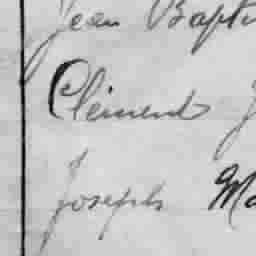 Jean Bapti
Clément J
Joseph Ma